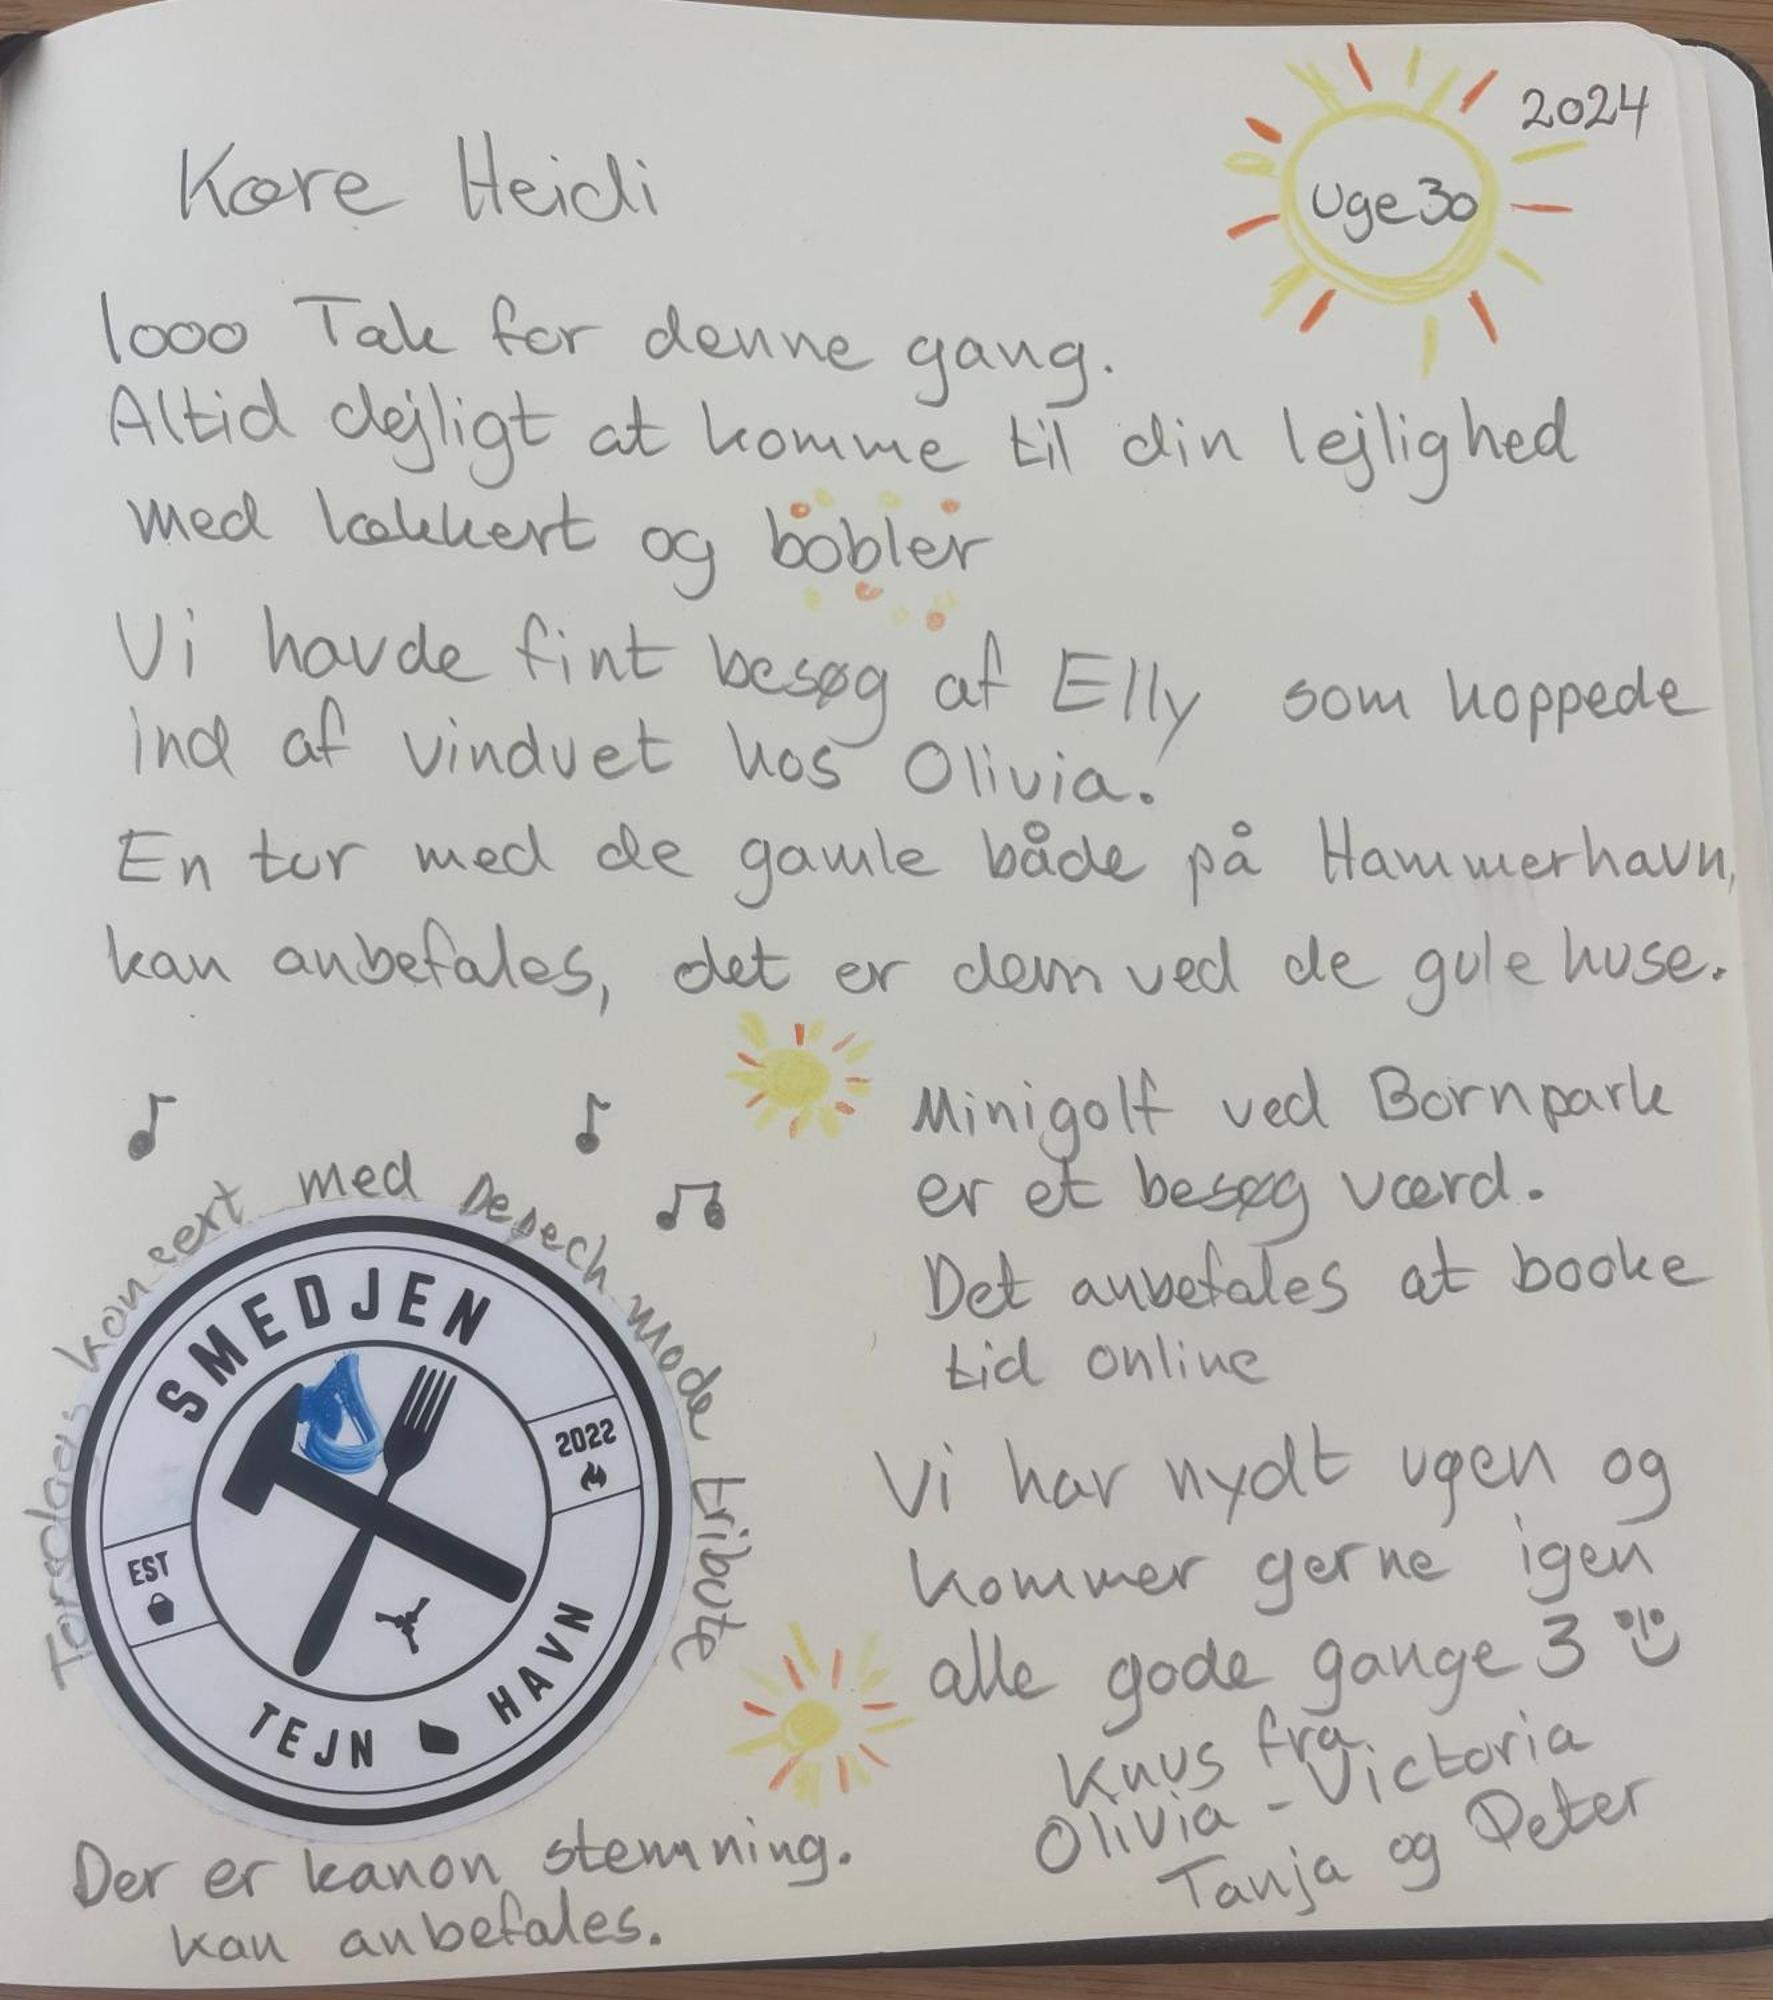 2024
Uge 30
Kære Heidi
1000 Tak for denne gang.
Altid dejligt at komme til din lejlighed
med lækkert og bobler
Vi havde fint besøg af Elly som hoppede
ind af vinduet hos Olivia.
En tur med de gamle både på Hammerhavn,
kan anbefales, det er dem ved de gule huse.
Minigolf ved Bornpark
er et besøg værd.
Det anbefales at booke
tid online
Torsdags koncert med Depech Mode tribute
SMEDJEN
2022
EST
TEJN HAVN
Der er kanon stemning.
kan anbefales.
Vi har nydt ugen og
kommer gerne igen
alle gode gange 3
Knus fra
Olivia - Victoria
Tanja og Peter